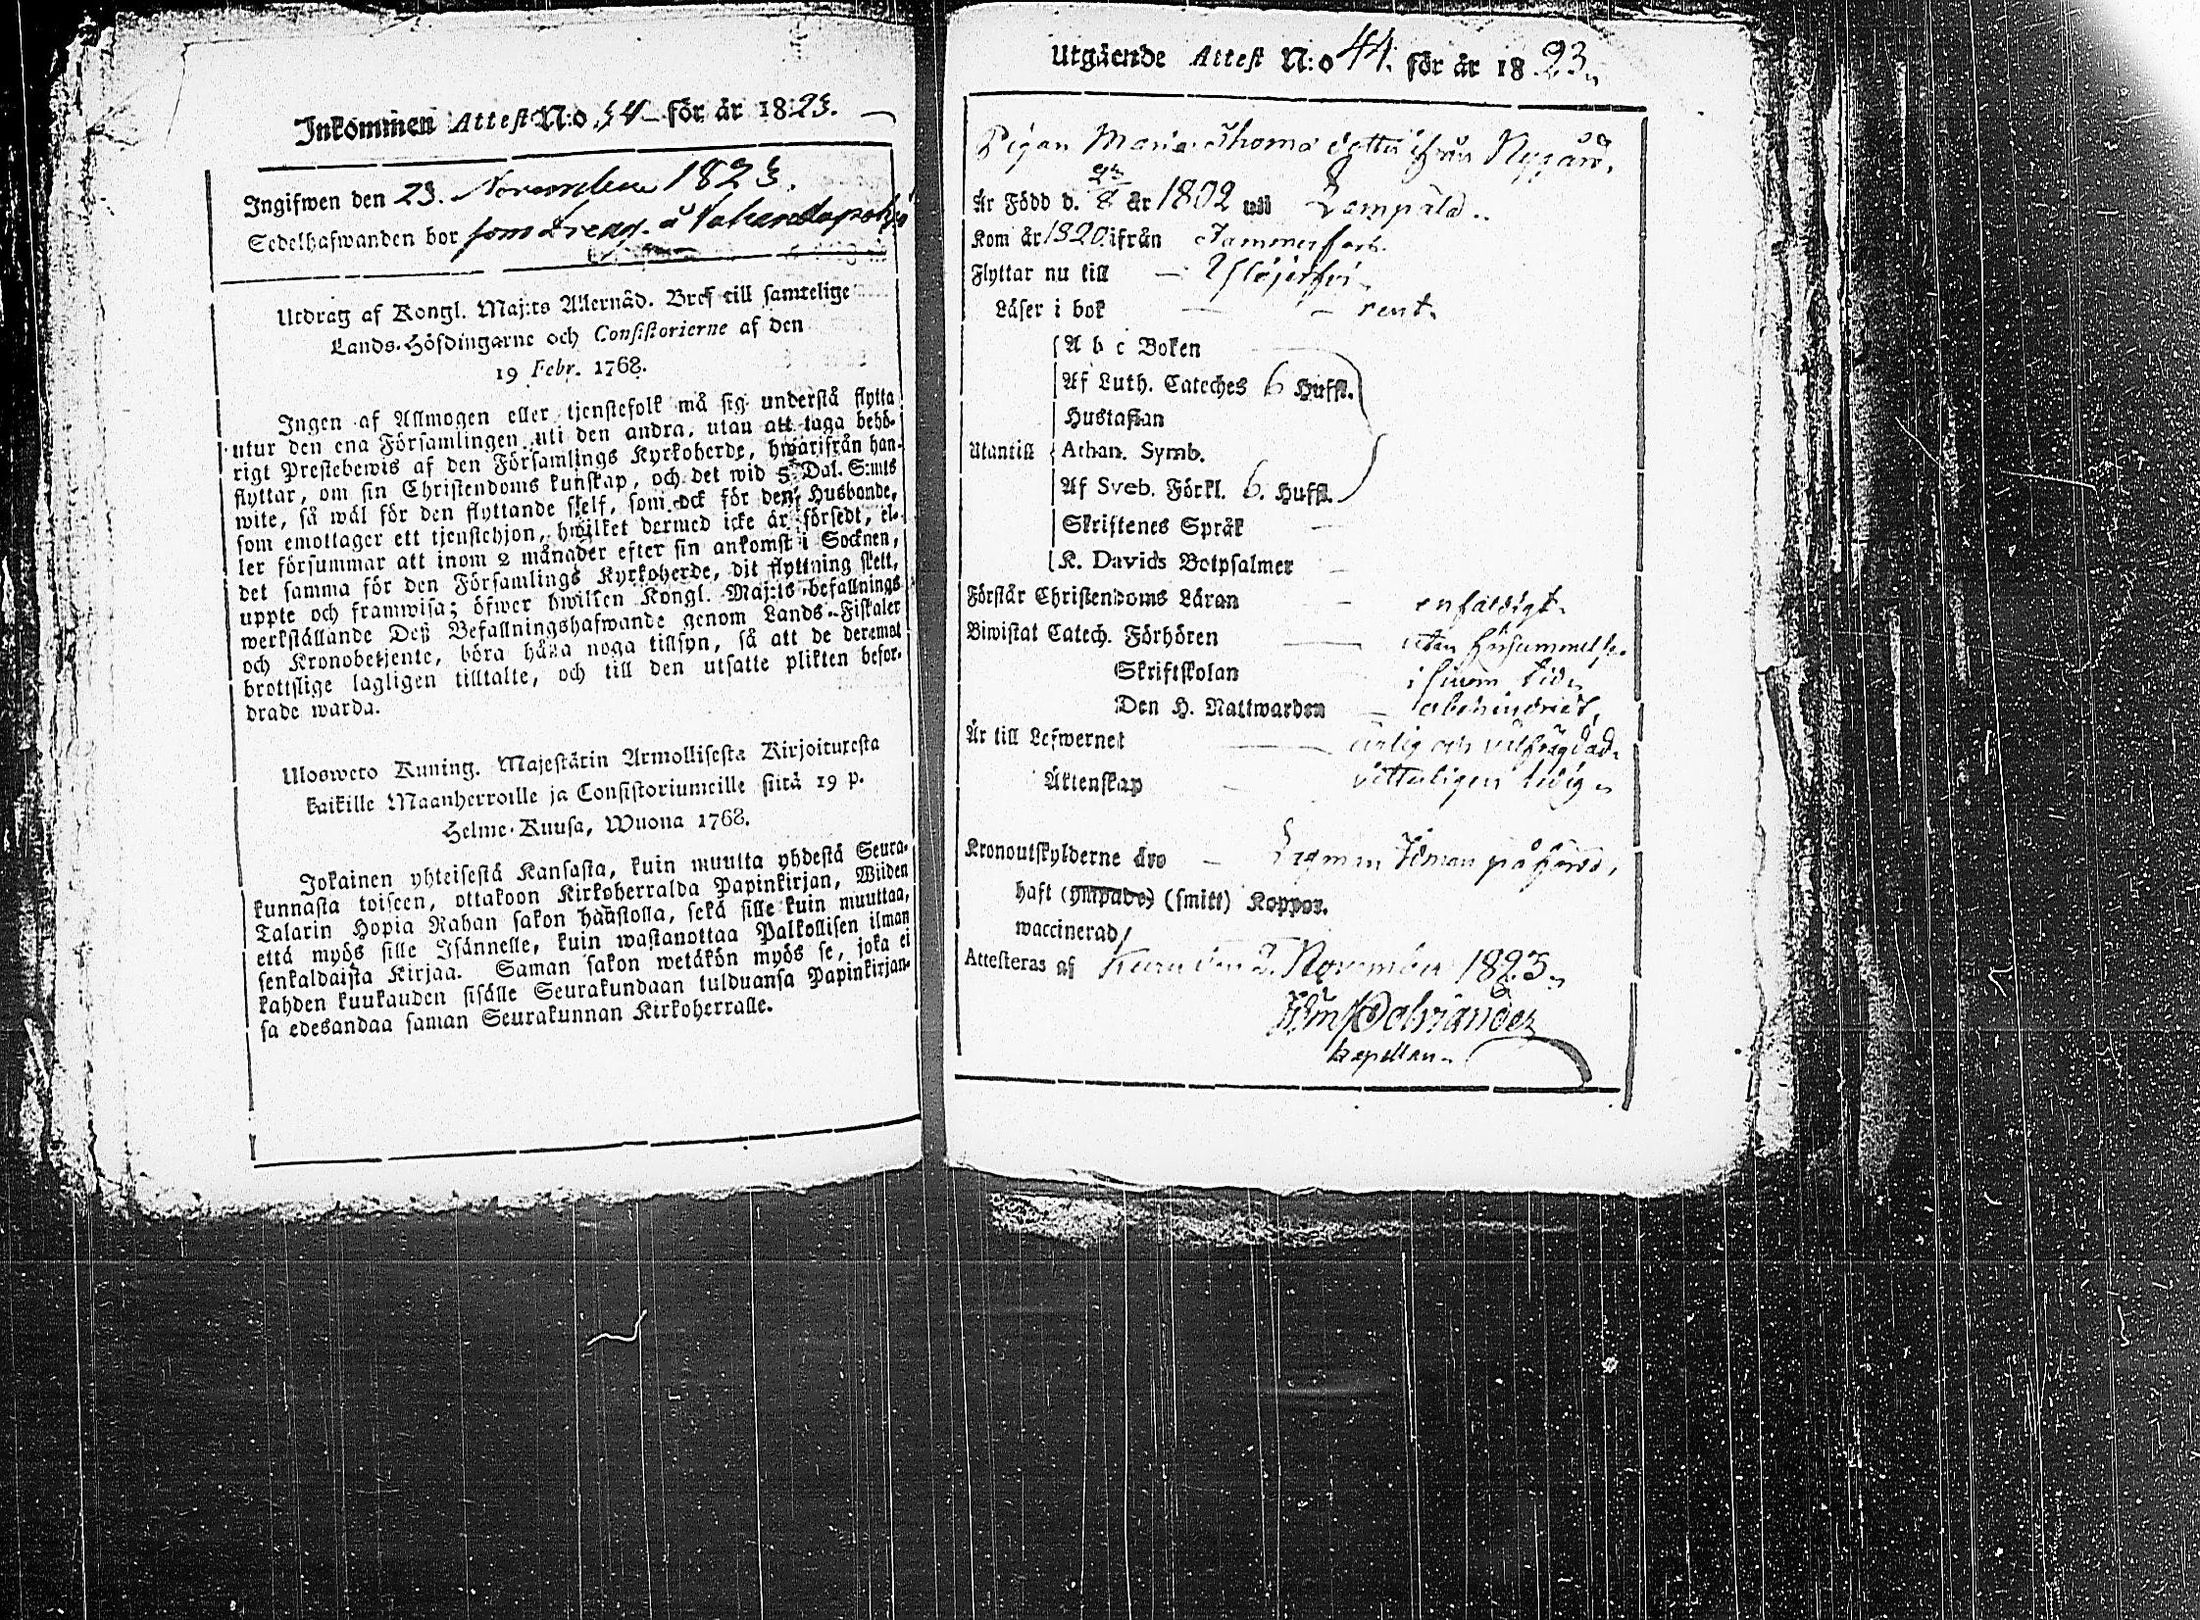 Inkommen Attest N:o 54 för år 1823.
Ingifwen den 23. November 1823.
Sedelhafwanden bor som Dreng. å
Utdrag af Kongl. Maj:ts Allernåd. Bref till samtelige
Lands-Höfdingarne och Consistorierne af den
19 Febr. 1768.
Ingen af Allmogen eller tjenstefolk må sig understå flytta
utur den ena Församlingen uti den andra, utan att taga behö-
rigt Prestebewis af den Församlings Kyrkoherde, hwarifrån han
flyttar, om sin Christendoms kunskap, och det wid 5 Dal. S:mts
wite, så wäl för den flyttande sjelf, som ock för den Husbonde,
som emottager ett tjenstehjon, hwilket dermed icke är försedt, el-
ler försummar att inom 2 månader efter sin ankomst i Socknen,
det samma för den Församlings Kyrkoherde, dit flyttning skett,
uppte och framwisa; öfwer hwilken Kongl. Maj:ts befallnings
werkställande Deß Befallningshafwande genom Lands-Fiskaler
och Kronobetjente, böra hålla noga tillsyn, så att de deremot
brottslige lagligen tilltalte, och till den utsatte plikten befor-
drade warda.
Ulosweto Kuning. Majestätin Armollisesta Kirjoituresta
kaikille Maanherroille ja Consistoriumeille siitä 19 p.
Helme-Kuusa, Wuona 1768.
Jokainen yhteisestä Kansasta, kuin muutta yhdestä Seura-
kunnasta toiseen, ottakoon Kirkoherralda Papinkirjan, Wiiden
Talarin Hopia Rahan sakon haastolla, sekä sille kuin muuttaa,
että myös sille Isännelle, kuin wastanottaa Palkollisen ilman
senkaldaista Kirjaa. Saman sakon wetäkön myös se, joka ei
kahden kuukauden sisälle Seurakundaan tulduansa Papinkirjan-
sa edesandaa saman Seurakunnan Kirkoherralle.
Utgående Attest N:o 44. för år 1823.
Pigan Maria Thomasdotter ifrån Nygård.
Är Född d. 23/8 år 1802 uti Lempälä.
Kom år 1820 ifrån Tammerfors.
Flyttar nu till — Ylöjerfvi
Läser i bok — — rent.
A b c Boken
Af Luth. Cateches 6 Hufst.
Hustaflan
Utantill Athan. Symb.
Af Sveb. Förkl. 6. Hufst.
Skriftenes Språk —
K. Davids Botpsalmer —
Förstår Christendoms Läran — enfaldigt.
Biwistat Catech. Förhören — utan försummelse.
Skriftskolan i sinom tid.
Den H. Nattwarden — obehindrad.
Är till Lefwernet — ärlig och välfrägdad.
Äktenskap — vitterligen ledig.
Kronoutskylderne äro — påförda.
haft (ympade) (smitt) Koppor.
waccinerad
Attesteras af Kuru den 2. November 1823.
kapellan.